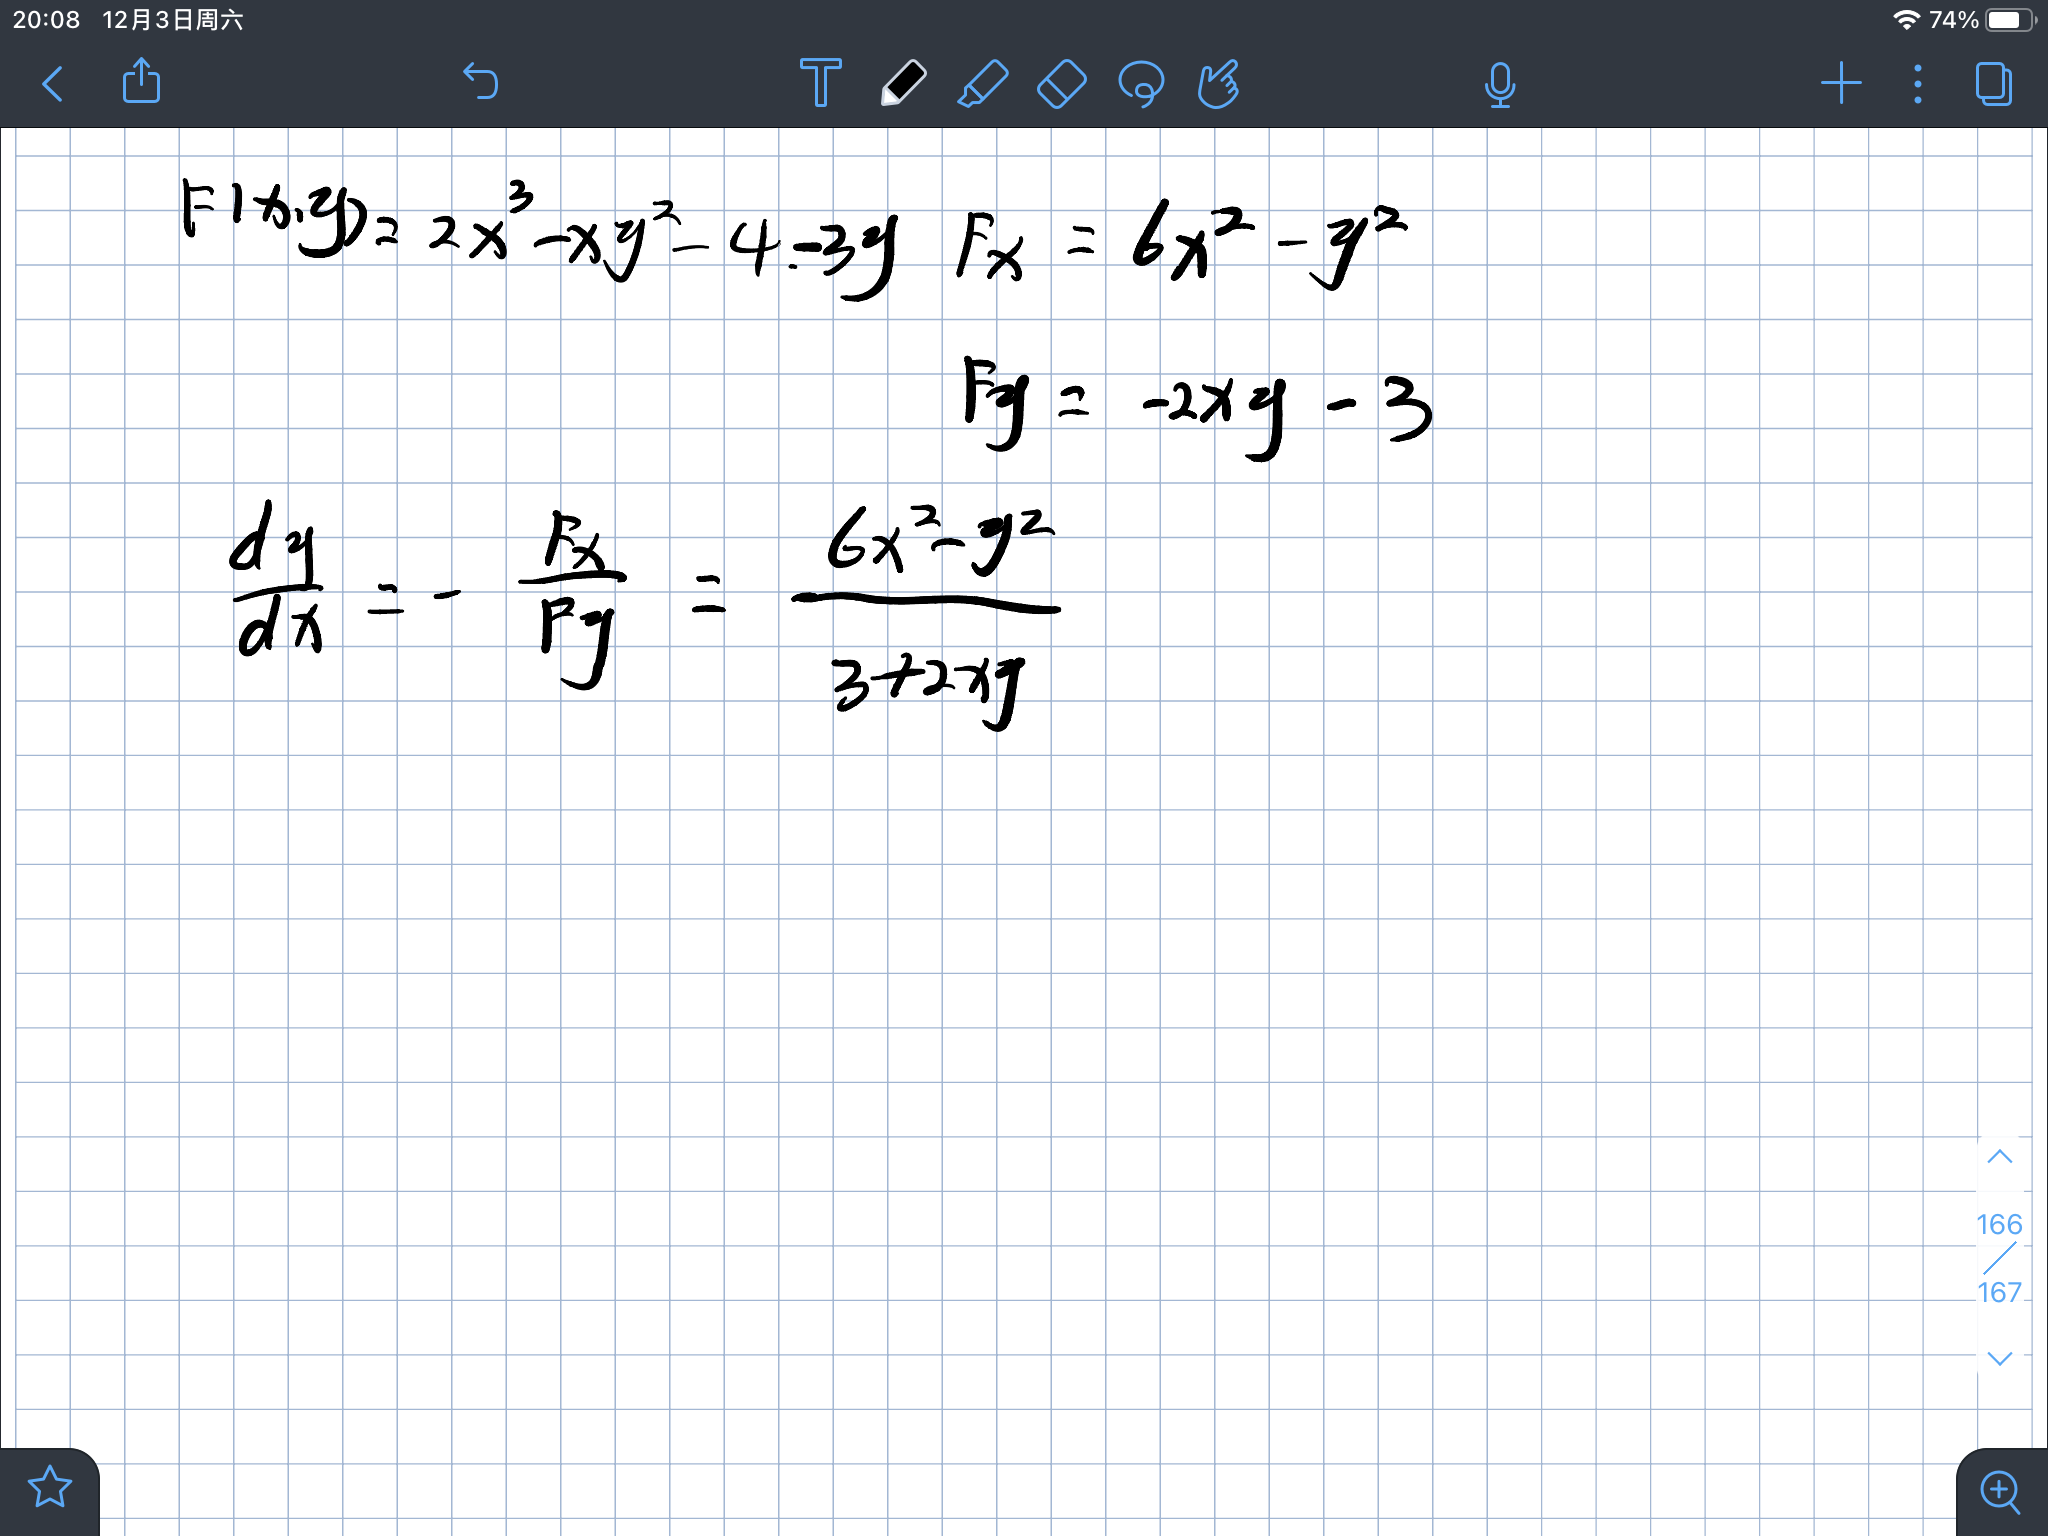 20:08 12月3日周六 74%
F(x,y)= 2x³-xy²-4-3y Fx = 6x²-y²
Fy = -2xy-3
dy/dx = - Fx/Fy = 6x²-y²/3+2xy
166
167